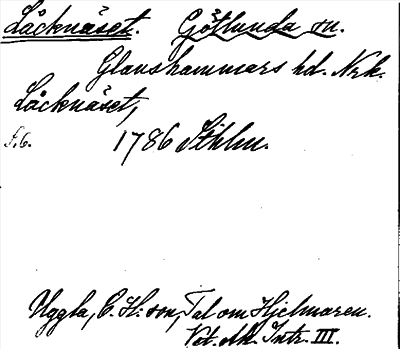 Läcknäset. Götlunda sn.
Glanshammars hd. Nrk.
Läcknäset,
s. 6. 1786 Sthlm.
Uggla, C. H:son, Tal om Hjelmaren.
Vet. akk. Intr. III.